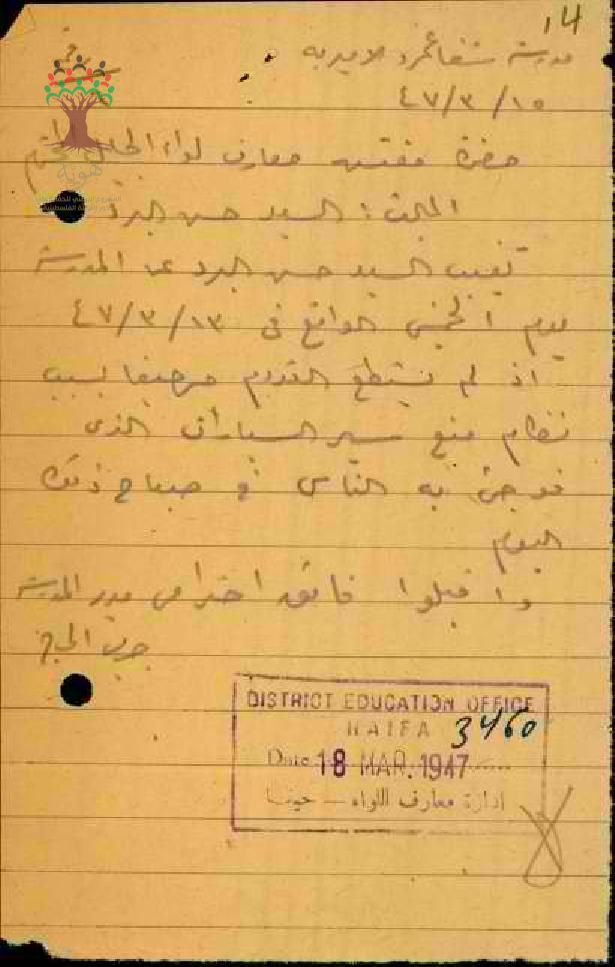 14
مدرسة شفا عمرو الاميرية
٤٧/٣/١٥
حضرة مفتش معارف لواء الجليل المحترم
هوية
المبحث : السيد حسن البرد
تغيب السيد حسن البرد عن المدرسة
يوم الخميس الواقع في ٤٧/٣/١٣
اذ لم يستطع القدوم من حيفا بسبب
نظام منع سير السيارات الذي
فوجئ به الناس في صباح ذلك
اليوم
واقبلوا فائق احترامي مدير المدرسة
DISTRICT EDUCATION OFFICE
HAIFA 3460
Date 18 MAR. 1947
ادارة معارف اللواء — حيفا